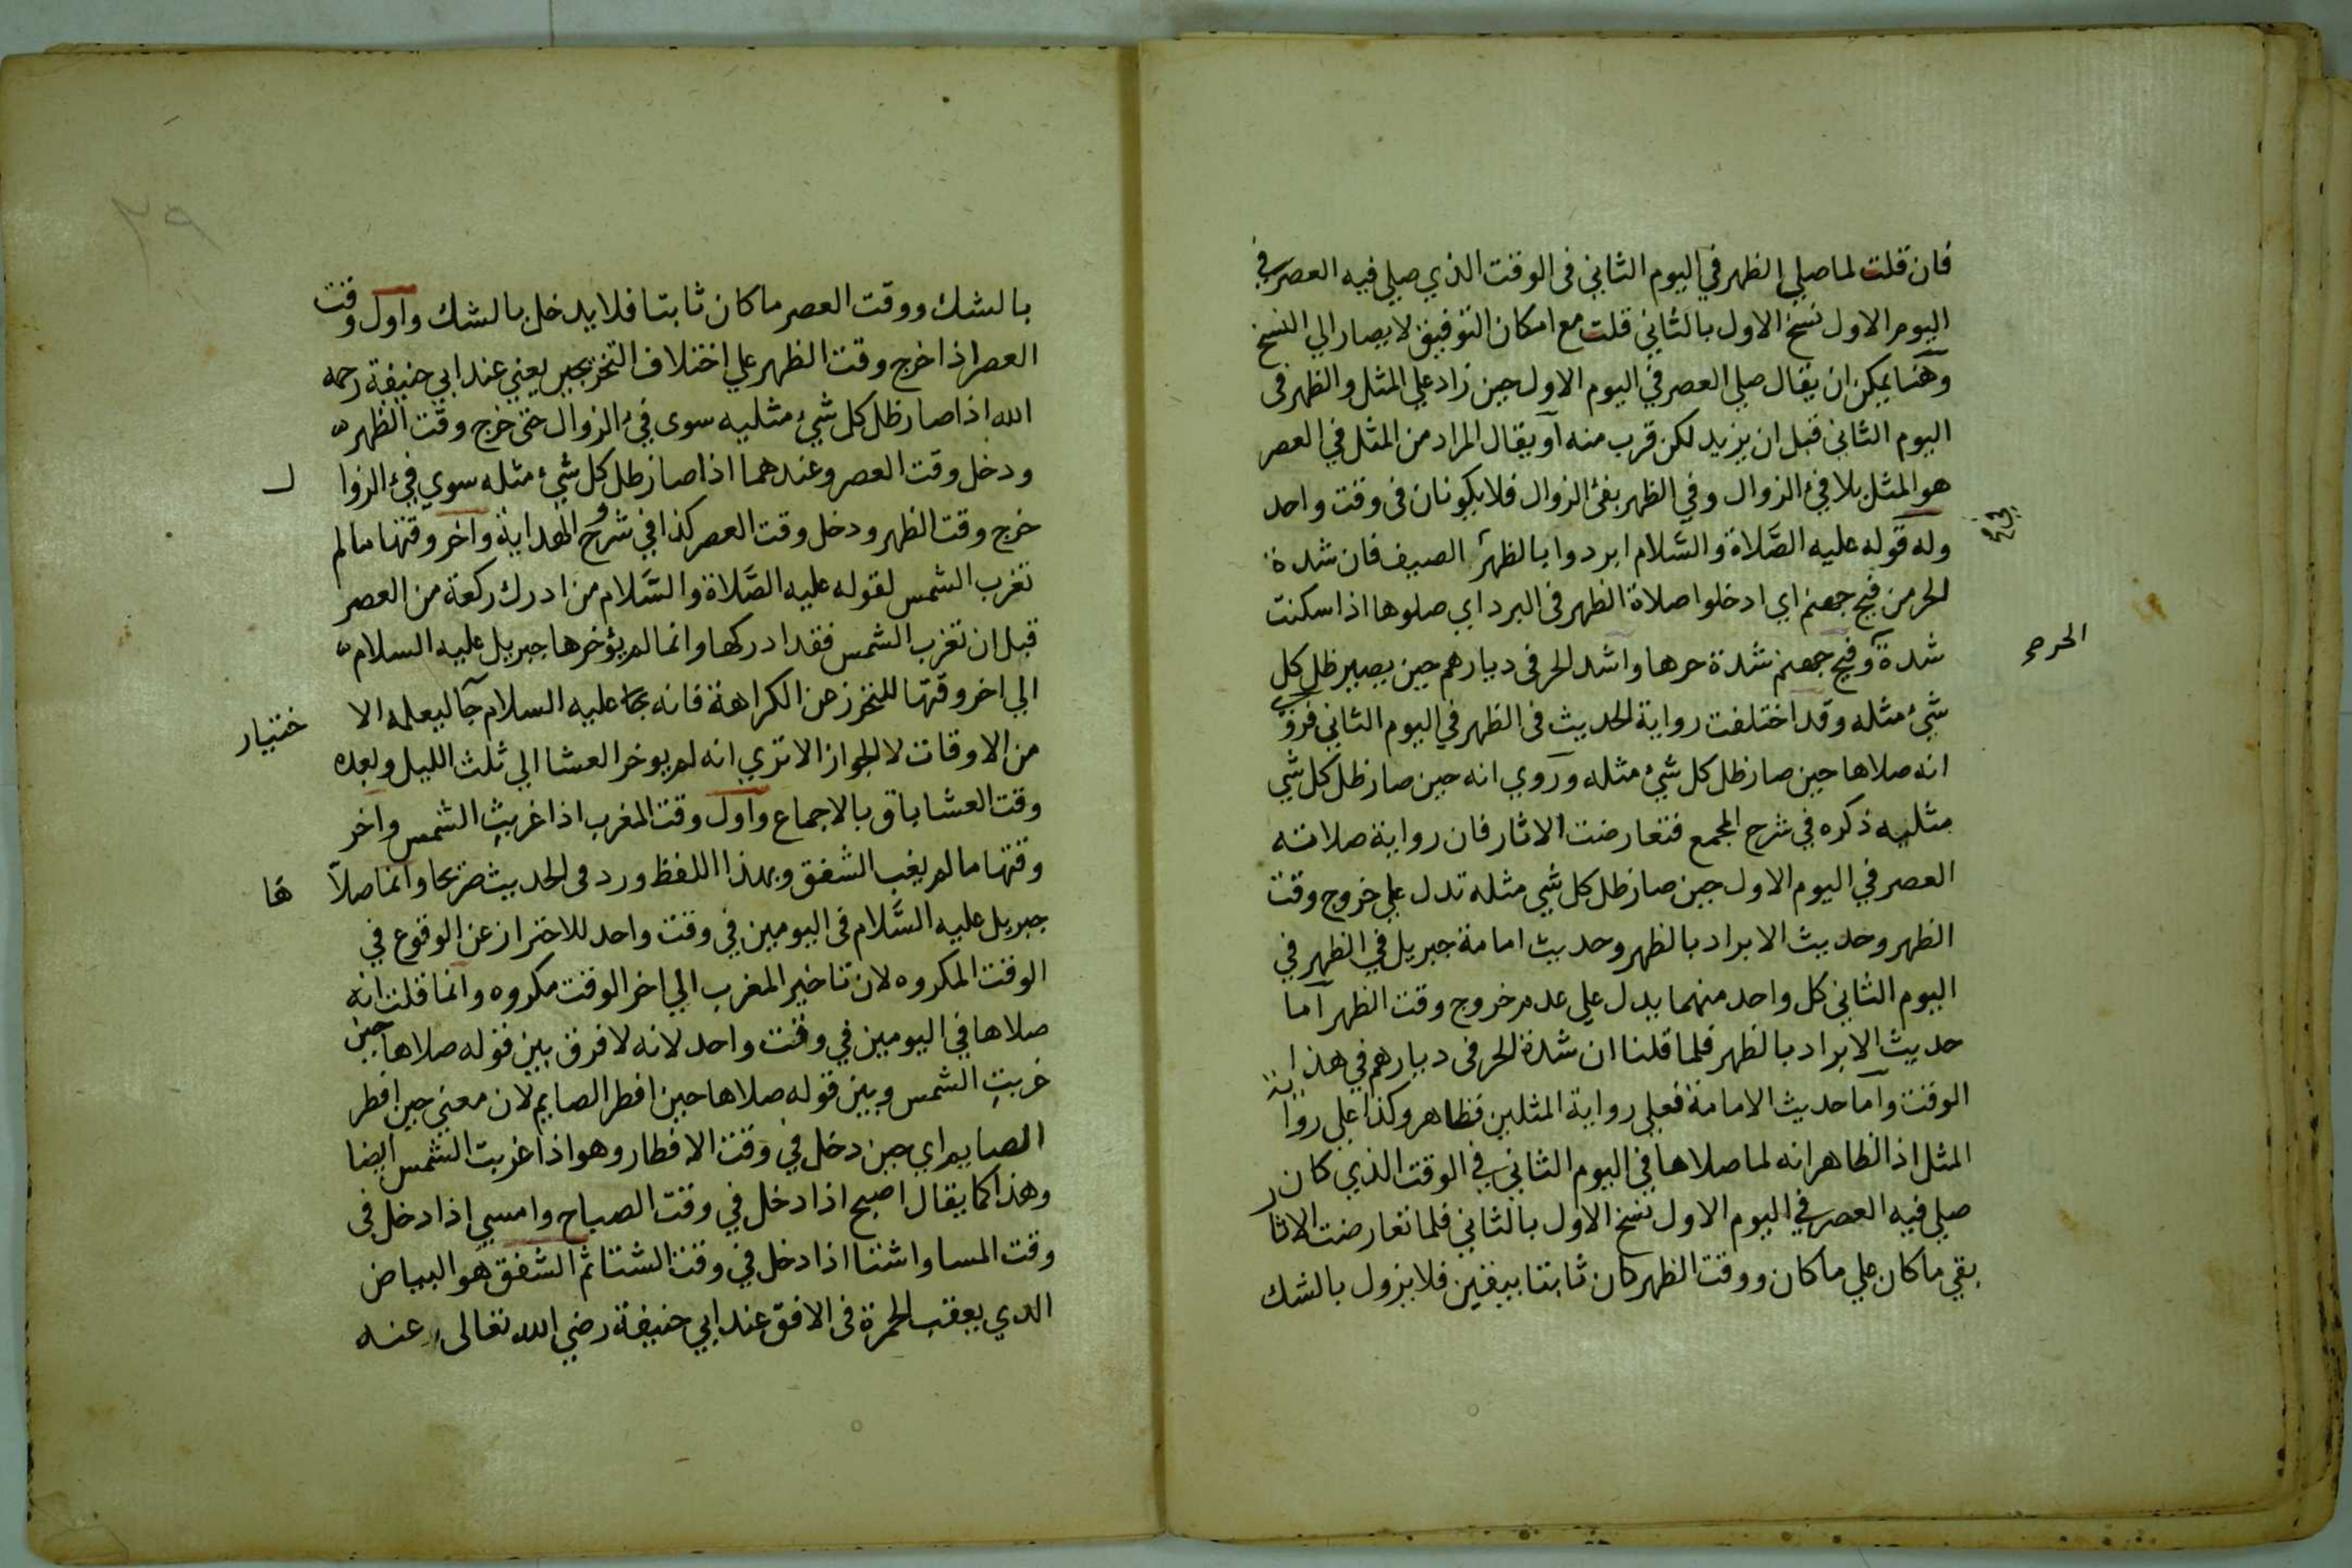 فان قلت لما صلي الظهر في اليوم الثاني فى الوقت الذي صلي فيه العصر في
اليوم الاول نسخ الاول بالثاني قلت مع امكان التوفيق لا يصار الي النسخ
وهنا يمكن ان يقال صلي العصر في اليوم الاول حين زاد علي المثل والظهر فى
اليوم الثاني قبل ان يزيد لكن قرب منه او يقال المراد من المثل في العصر
هو المثل بلا فئ الزوال وفي الظهر بفئ الزوال فلا يكونان فى وقت واحد
وله قوله عليه الصَّلاة والسَّلام ابردوا بالظهر الصيف فان شدة
الحر من فيح جهنم اي ادخلوا صلاة الظهر فى البرد اي صلوها اذا سكنت
شدة وفيح جهنم شدة حرها واشد الحر فى ديارهم حين يصير ظل كل
الحر صح
شئ مثله وقد اختلفت رواية الحديث فى الظهر في اليوم الثاني فروي
انه صلاها حين صار ظل كل شئ مثله وروي انه حين صار ظل كل شي
مثليه ذكره في شرح المجمع فتعارضت الاثار فان رواية صلاته
العصر في اليوم الاول حين صار ظل كل شي مثله تدل علي خروج وقت
الظهر وحديث الابراد بالظهر وحديث امامة جبريل في الظهر في
اليوم الثاني كل واحد منهما يدل علي عدم خروج وقت الظهر اما
حديث الابراد بالظهر فلما قلنا ان شدة الحر فى ديارهم في هذا
الوقت واما حديث الامامة فعلي رواية المثلين فظاهر وكذا علي رواية
المثل اذ الظاهر انه لما صلاها في اليوم الثاني في الوقت الذي كان
صلي فيه العصر في اليوم الاول نسخ الاول بالثاني فلما تعارضت الاثار
بقي ما كان علي ما كان ووقت الظهر كان ثابتا بيقين فلا يزول بالشك
٢٩
بالشك ووقت العصر ما كان ثابتا فلا يدخل بالشك واول وقت
العصر اذا خرج وقت الظهر علي اختلاف التخريجين يعني عند ابي حنيفة رحمه
الله اذا صار ظل كل شئ مثليه سوى فئ الزوال حتى خرج وقت الظهر
ودخل وقت العصر وعندهما اذا صار ظل كل شئ مثله سوي فئ الزوا ل
خرج وقت الظهر ودخل وقت العصر كذا في شروح الهداية واخر وقتها مالم
تغرب الشمس لقوله عليه الصَّلاة والسَّلام من ادرك ركعة من العصر
قبل ان تغرب الشمس فقد ادركها وانما لم يؤخرها جبريل عليه السلام
الي اخر وقتها للتحرز عن الكراهة فانه عليه السلام جا ليعلمه الا ختيار
من الاوقات لا الجواز الا تري انه لم يوخر العشا الي ثلث الليل وبعده
وقت العشا باق بالاجماع واول وقت المغرب اذا غربت الشمس واخر
وقتها ما لم يغب الشفق وبهذا اللفظ ورد فى الحديث صريحا وانما صلا ها
جبريل عليه السَّلام فى اليومين في وقت واحد للاحتراز عن الوقوع في
الوقت المكروه لان تاخير المغرب الي اخر الوقت مكروه وانما قلت انه
صلاها في اليومين في وقت واحد لانه لا فرق بين قوله صلاها حين
غربت الشمس وبين قوله صلاها حين افطر الصايم لان معني حين افطر
الصايم اي حين دخل في وقت الافطار وهو اذا غربت الشمس ايضا
وهذا كما يقال اصبح اذا دخل في وقت الصباح وامسي اذا دخل فى
وقت المسا واشتا اذا دخل في وقت الشتا ثم الشفق هو البياض
الذي يعقب الحمرة فى الافق عند ابي حنيفة رضي الله تعالى عنه